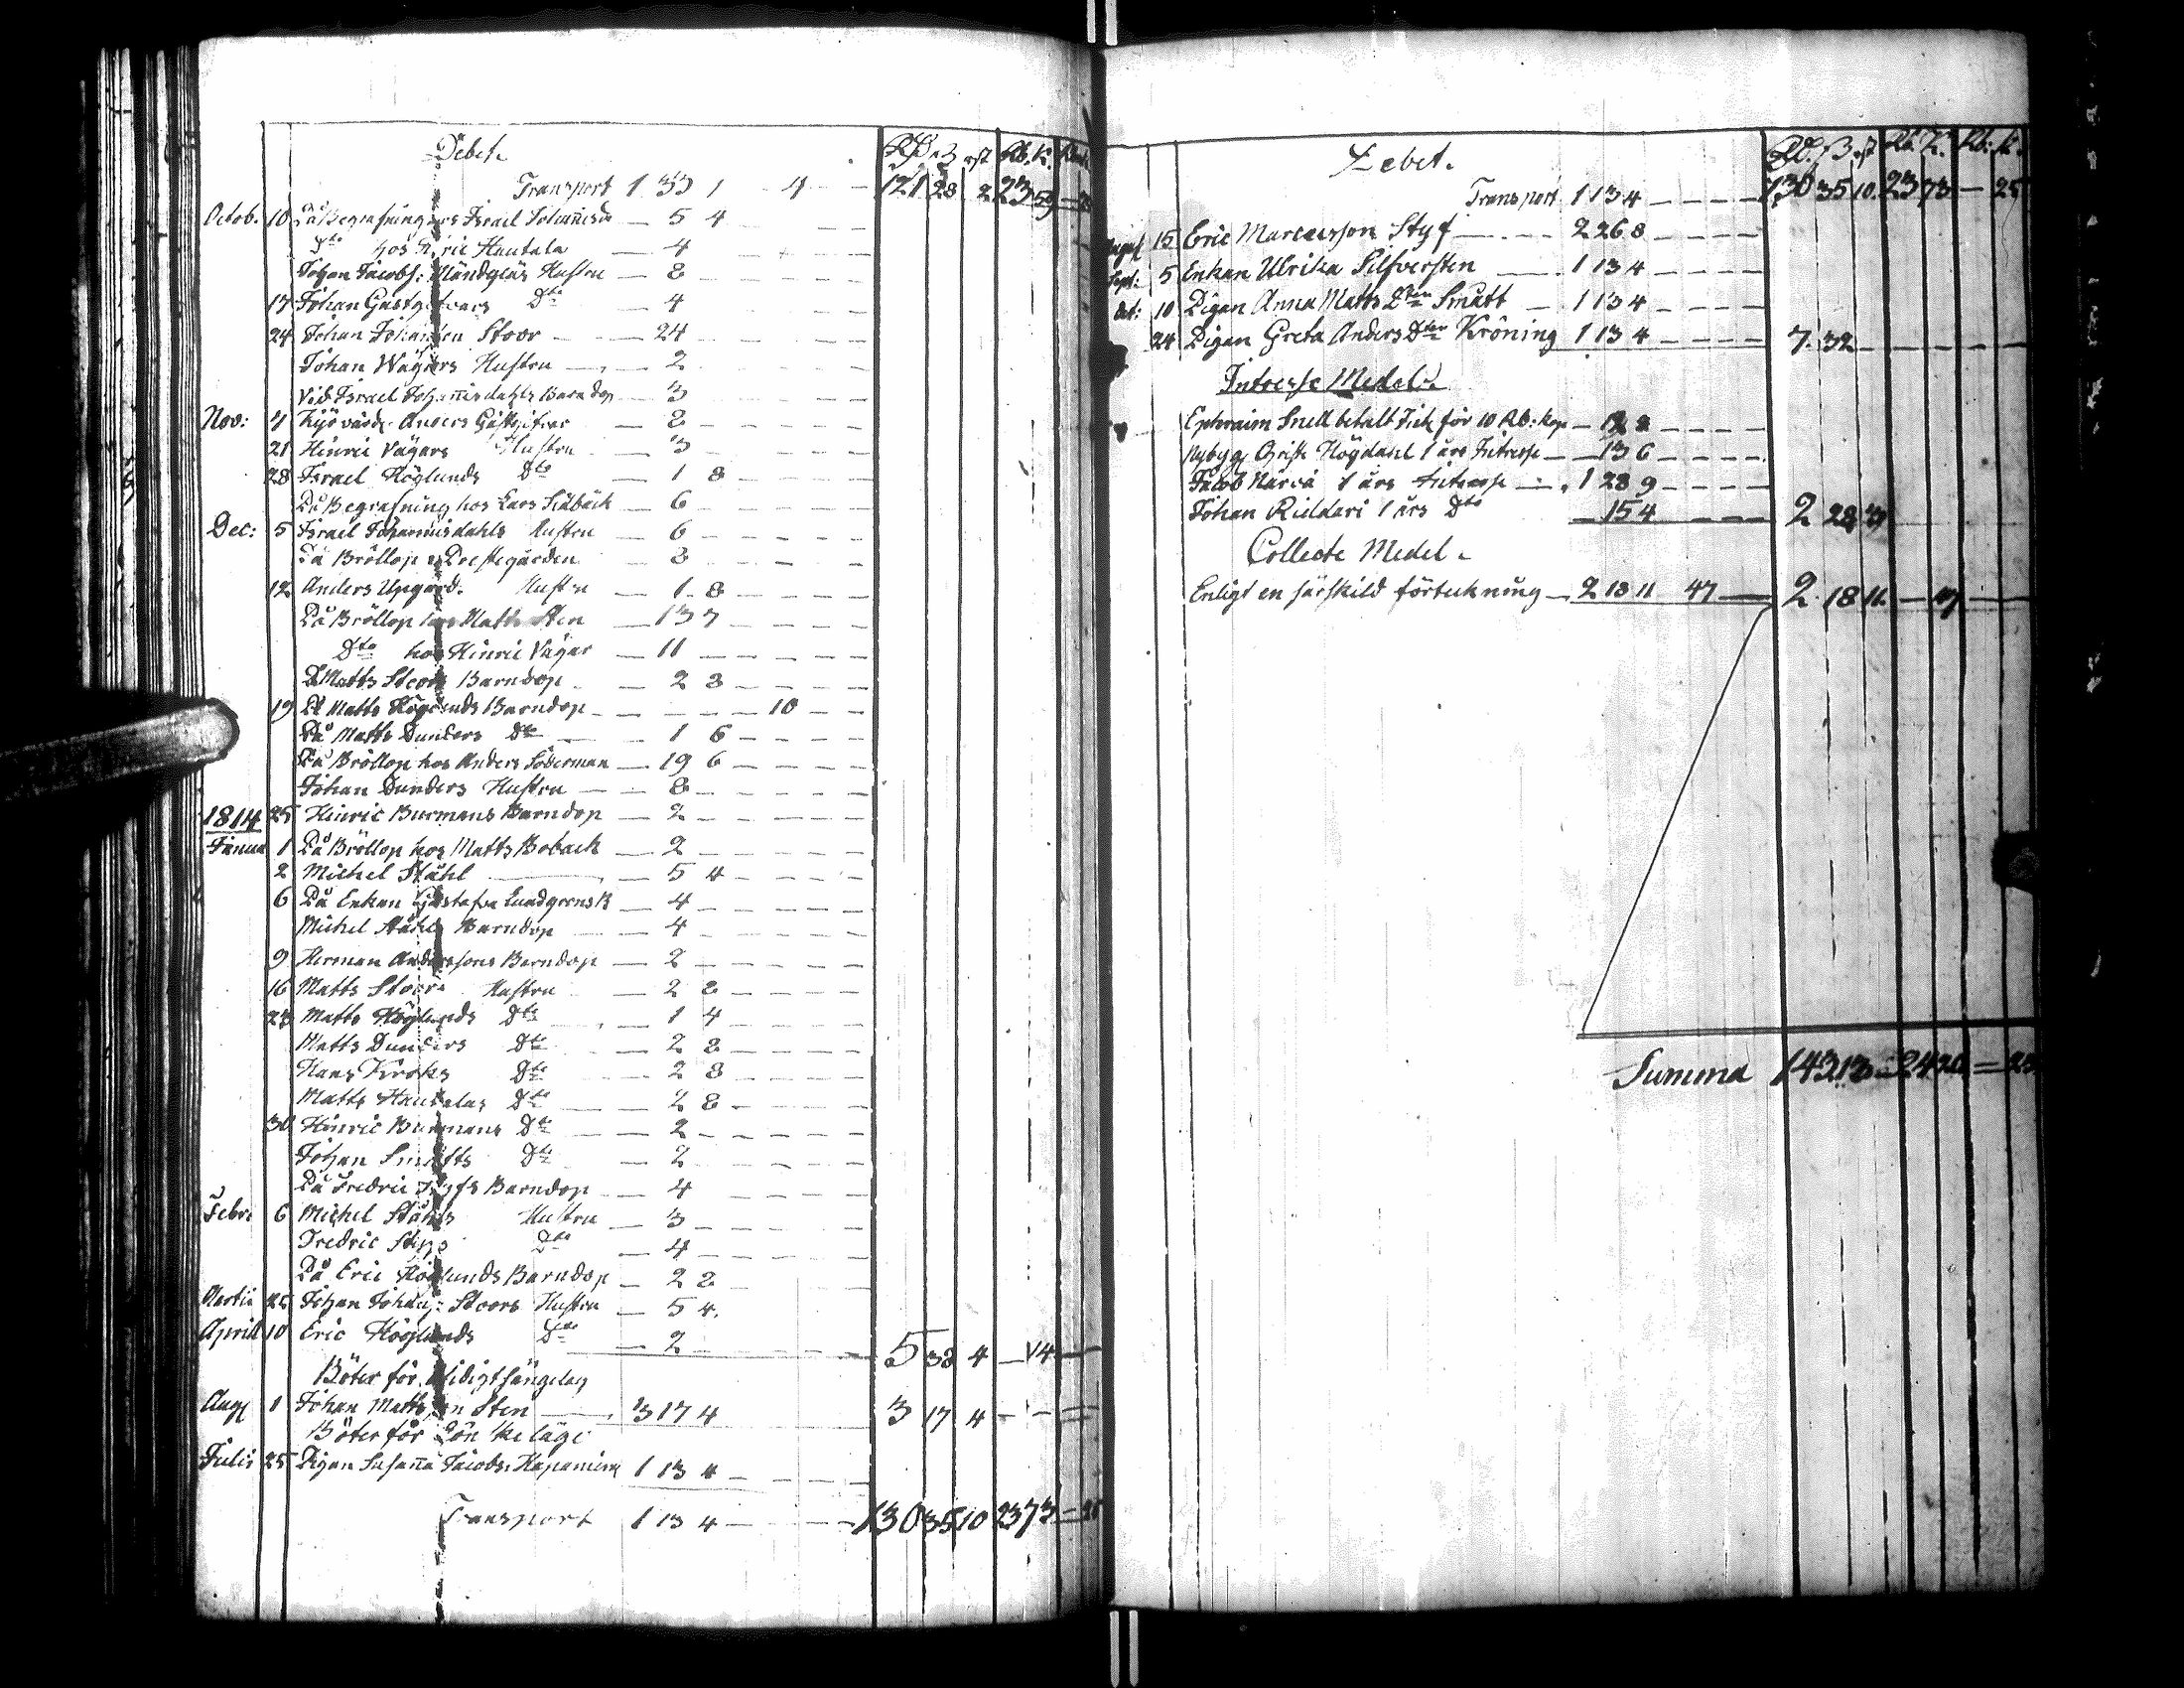 Debet.
Rd ß rst Rb. K.
Transport 1 33 1 4 121 28 2 23 59
Octob. 10 På Begrafning hos Israel Johannisd 5 4
Dto hos Eric Hautala 4
Johan Jacobs: Hustru 8
17 Johan Gästgifvars Dto 4
24 Johan Johansson Stoor 24
Johan Wägars Hustru 2
Vid Israel Johannisdahls Barndop 3
Nov: 7 Kyrkvärd: Anders Gästgifvar 8
21 Hinric Vägars Hustru 3
28 Israel Höglunds Dto 1 8
På Begrafning hos Lars 6
Dec: 5 Israel Johannisdahls Hustru 6
På Bröllop i Prestegården 8
12 Anders Hustru 1 8
På Bröllop hos Matts Sten 13 7
Dto hos Hinric Vägar 11
På Matts Stoors Barndop 2 8
19 På Matts Höglunds Barndop 10
På Matts Dunders Dto 1 6
På Bröllop hos Anders Söderman 19 6
Johan Dunders Hustru 8
1814 25 Hinric Burmans Barndop 2
Janua 1 På Bröllop hos Matts Boback 2
2 Michel Ståhl 5 4
6 På Enkan Gustafva Lundgrens B 4
Michel Ståhls Barndop 4
9 Herman Anderssons Barndop 2
16 Matts Stoors Hustru 2 8
23 Matts Höglunds Dto 1 4
Matts Dunders Dto 2 8
Hans Kroks Dto 2 8
Matts Hautalas Dto 2 8
30 Hinric Burmans Dto 2
Johan Smätts Dto 2
På Fredric Styfs Barndop 4
Febr: 6 Michel Ståhls Hustru 3
Fredric Styfs Dto 4
På Eric Höglunds Barndop 2 8
Martii 25 Johan Johans: Stoors Hustru 5 4
April 10 Eric Höglunds Dto 2 5 38 4 14
Böter för otidigt sängelag
Aug 1 Johan Mattsson Sten 3 17 4 3 17 4
Böter för Lönskeläge
Julii 25 Pigan Susanna Jacobs: 1 13 4
Transport 1 13 4 130 35 10 23 73 25
Debet.
Rd. ß rst Rb. K. Rb. K.
Transport 1 13 4 130 35 10 23 73 25
August 15 Eric Marcusson Styf 2 26 8
Sept: 5 Enkan Ulrika Silfversten 1 13 4
Oct: 10 Pigan Anna Matts Dter Smått 1 13 4
24 Pigan Greta Anders Dter Kröning 1 13 4 7 32
Intresse Medel.
Ephraim Snell betalt Intr för 10 Rb: Kop
Nybyg Christ Högdahl 1 års Intresse 13 6
Jacob Närvä 1 års Intresse 1 28 9
Johan Rieldari 1 års Dto 15 4 2 28
Collecte Medel
Enligt en särskild förtekning 2 18 11 47 2 18 11 47
Summa 143 18 24 20 25